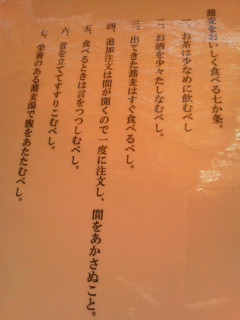 蕎麦をおいしく食べる七か条。
一、お茶は少なめに飲むべし
二、お酒を少々たしなむべし。
三、出てきた蕎麦はすぐ食べるべし。
四、追加注文は間が開くので一度に注文し、間をあかさぬこと。
五、食べるときは言をつつしむべし。
六、音を立ててすすりこむべし。
七、栄養のある蕎麦湯で腹をあたたむべし。